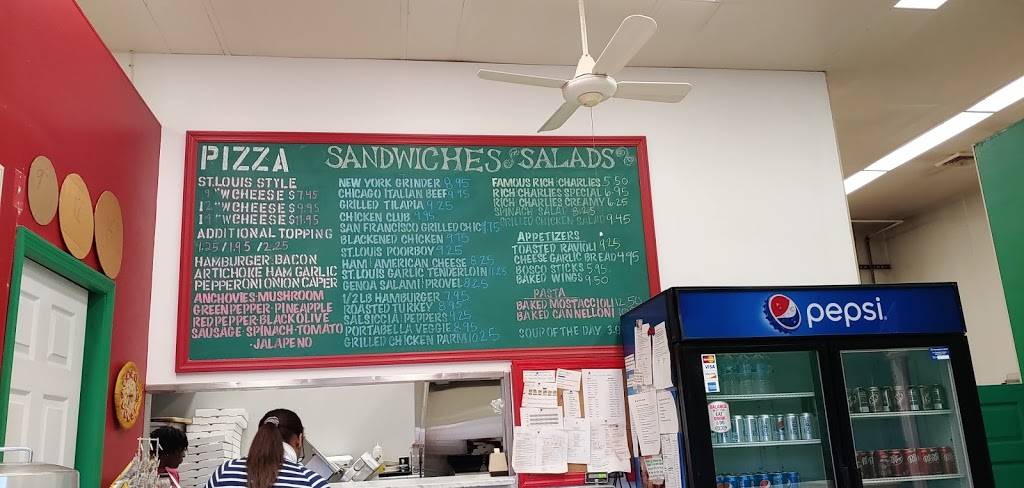 PIZZA
ST. LOUIS STYLE
9" W CHEESE $7.45
12" W CHEESE $9.95
14" W CHEESE $11.95
ADDITIONAL TOPPING
1.25 / 1.95 / 2.25
HAMBURGER·BACON
ARTICHOKE HAM GARLIC
PEPPERONI ONION CAPER
ANCHOVIES·MUSHROOM
GREEN PEPPER·PINEAPPLE
RED PEPPER·BLACK OLIVE
SAUSAGE·SPINACH·TOMATO
·JALAPENO
SANDWICHES SALADS
NEW YORK GRINDER 8.95
CHICAGO ITALIAN BEEF 9.95
GRILLED TILAPIA 9.25
CHICKEN CLUB 9.95
SAN FRANCISCO GRILLED CHIC
BLACKENED CHICKEN 9.75
ST. LOUIS POORBOY 9.25
HAM AMERICAN CHEESE 8.25
ST. LOUIS GARLIC TENDERLOIN
GENOA SALAMI PROVEL 8.25
1/2 LB HAMBURGER 7.95
ROASTED TURKEY 8.95
SALSICCIA PEPPERS 9.25
PORTABELLA VEGGIE 8.95
GRILLED CHICKEN PARM 10.25
FAMOUS RICH CHARLIES 5.50
RICH CHARLIES SPECIAL 6.95
RICH CHARLIES CREAMY 6.25
SPINACH SALAD 8.25
GRILLED CHICKEN SALAD 9.45
APPETIZERS
TOASTED RAVIOLI 9.25
CHEESE GARLIC BREAD 4.95
BOSCO STICKS 5.95
BAKED WINGS 9.50
PASTA
BAKED MOSTACCIOLI 12.50
BAKED CANNELLONI
SOUP OF THE DAY
pepsi
VISA